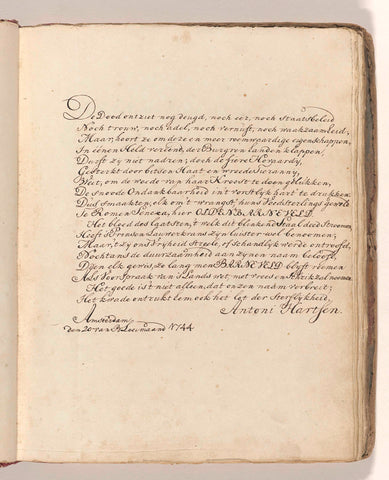 De Dood ontziet nog deugd, noch eer, noch staatsbeleid
Noch trouw, noch adel, noch vernuft, noch waakzaamheid;
Maar, hoort ze om deze en meer roemwaardige eigenschappen,
In eenen Held vereend, der Burgren handen klappen,
Durft zy niet nadren; doch de fiere
Gesterkt door bitsen Haat en wreede
Weet, om de wiede van haar Kroost te doen gelukken,
De snoode Ondankbaarheid int vorstlyk hart te drukken
Dus smaakten, elk om 't wrangst, huns Voedsterlings gewelt
Te Romen Seneca, hier OLDENBARNEVELD.
Het bloed des laatsten, welk dit blinkend Staal deed stroomen
Heeft 's Prinsen Lauwerkrans zyn luister wel benoomen;
Maar, 't zy ons Vryheid streele, of schandlyk werde ontroofd,
Nochtans de duurzaamheid aan zynen naam beloofd.
Dies elk gewis, zo lang men BARNEVELD blyft roemen
Als Voorspraak van 's Lands wet met vrees en zal noemen
Het goede is 't niet alleen, dat onzen naam verbreit;
Het kwade ontrukt hem ook het lot der Sterflykheid.
Antoni Hartsen.
Amsterdam
den 20 van Bloeimaand 1744